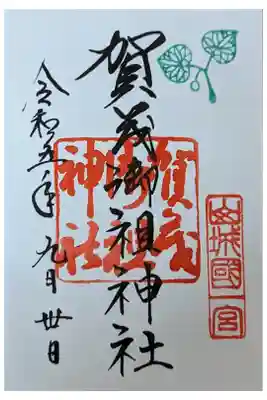 山城國一宮
賀茂御祖神社
賀茂
御祖
神社
令和五年 九月 卅日